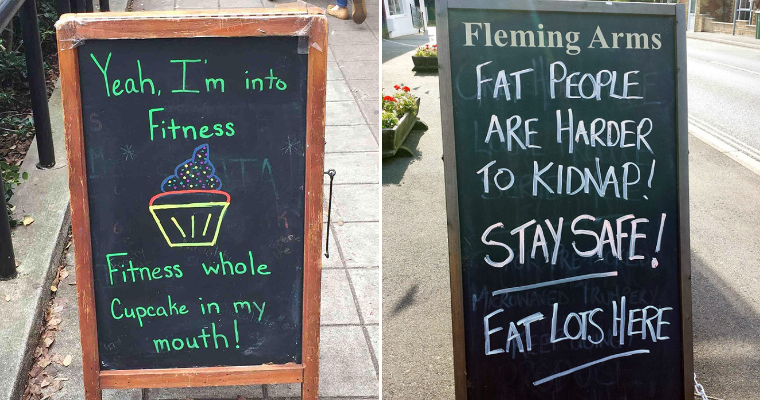 Yeah, I'm into
Fitness
Fitness whole
Cupcake in my
mouth!
Fleming Arms
FAT PEOPLE
ARE HARDER
TO KIDNAP!
STAY SAFE!
EAT LOTS HERE